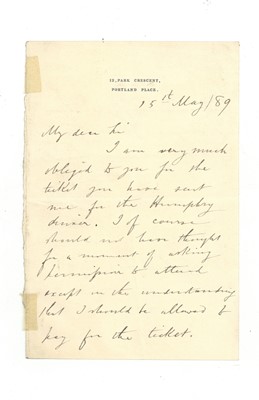 PARK CRESCENT,
PORTLAND PLACE.
15th May/89
My dear Sir
I am very much
obliged to you for the
ticket you have sent
me for the Humphry
dinner. I of course
should not have thought
for a moment of asking
permission to attend
except on the understanding
that I should be allowed to
pay for the ticket.